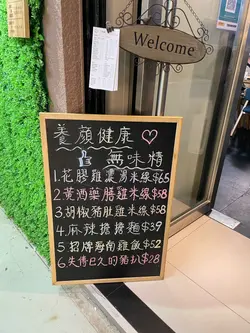 Welcome
養顏健康
無味精
1.花膠雞濃湯米線$65
2.黃酒藥膳雞米線$58
3.胡椒豬肚雞米線$58
4.麻辣擔擔麵$39
5.招牌海南雞飯$52
6.失傳已久的豬扒$28